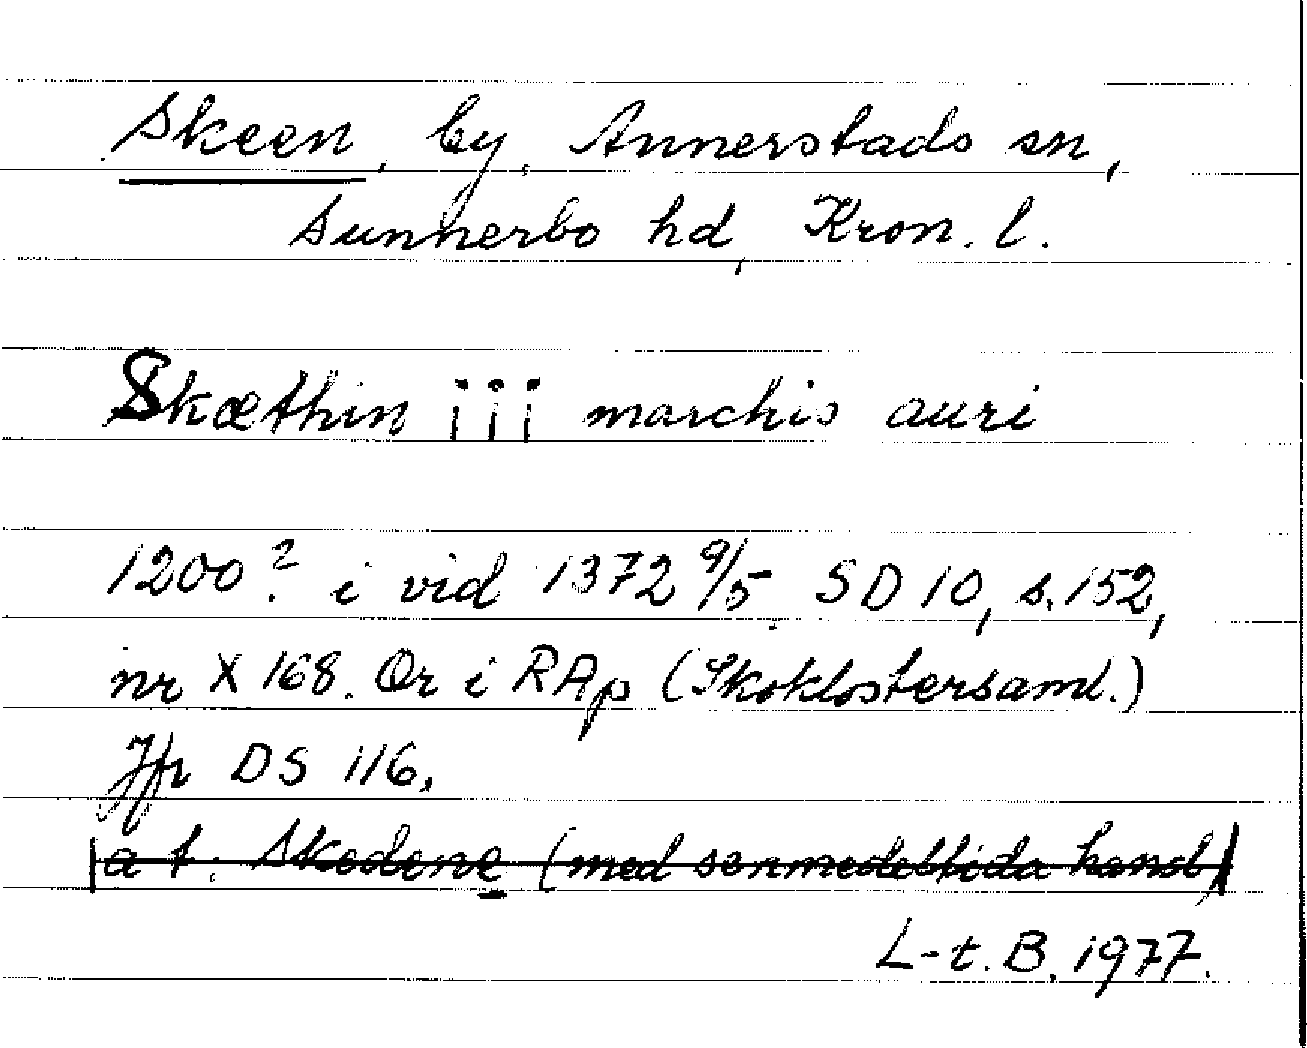 Skeen, by, Annerstads sn,
Sunnerbo hd, Kron. l.
Skæthin iij marchis auri
1200? i vid 1372 9/5. SD 10, s. 152,
nr X 168. Or i RAp (Skoklostersaml.)
Jfr DS 116,
a t. Skedene (med senmedeltida hand)
L-t. B. 1977.